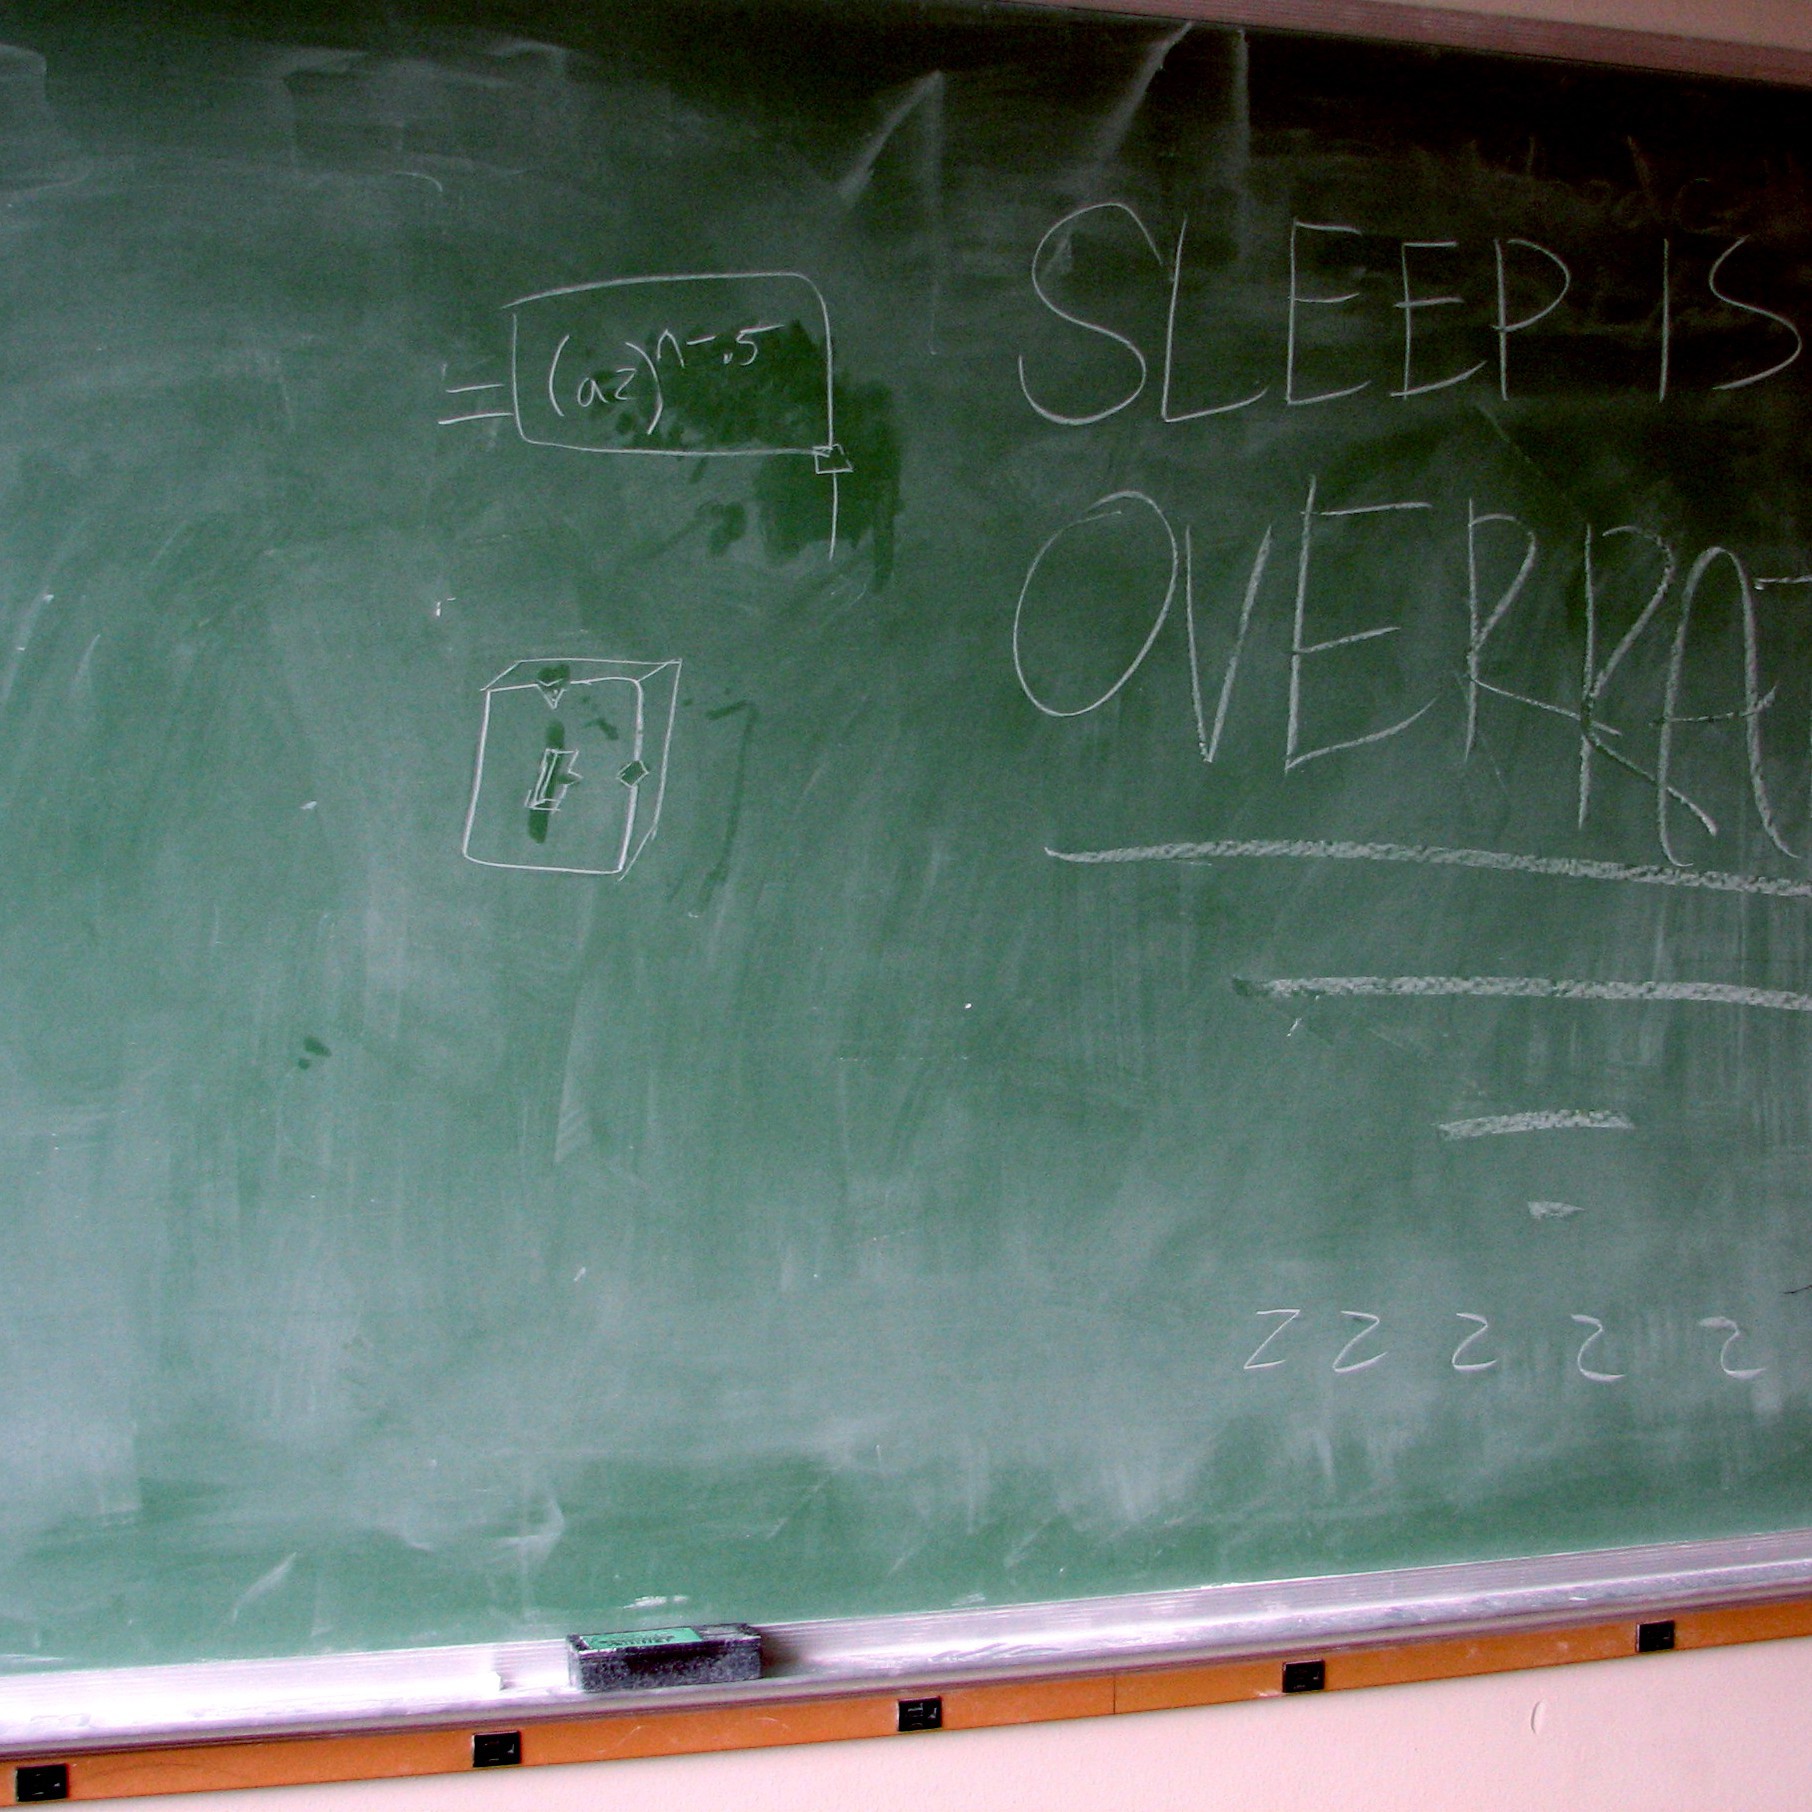 = (az)^n-.5
SLEEP IS
OVERRAT
z z z z z